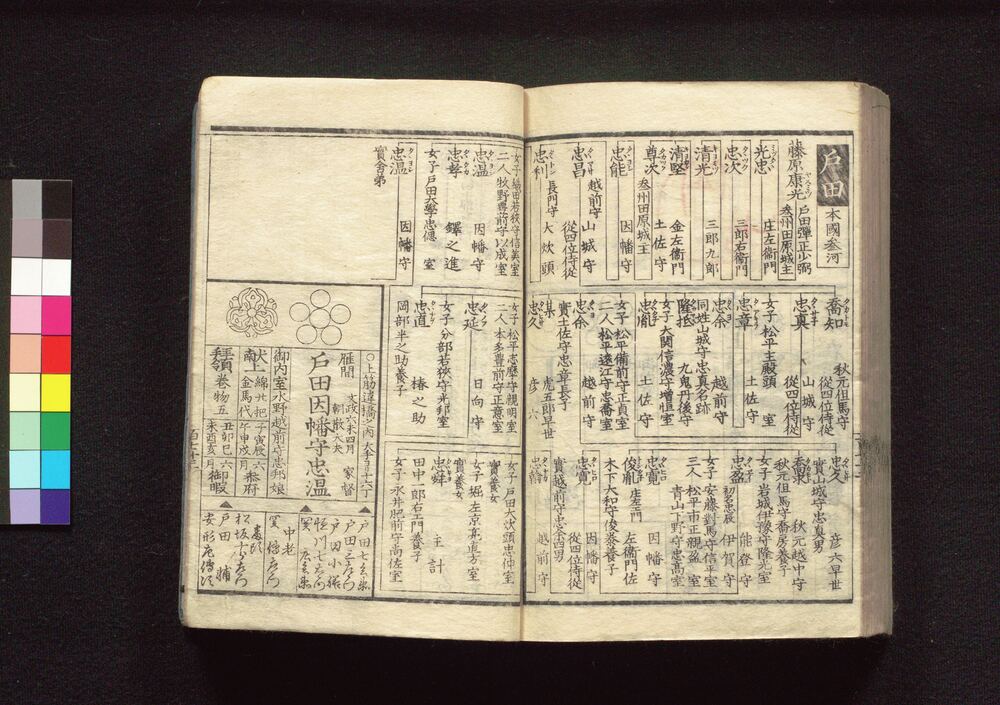 戸田
本國叁河
藤原康光
戸田彈正少弼
叁州田原城主
光忠
庄左衞門
忠次
三郎右衞門
清光
三郎九郎
清堅
金左衞門
尊次
土佐守
叁州田原城主
忠能
因幡守
忠昌
越前守
山城守
從四位侍從
忠利
長門守
大炊頭
喬知
秋元但馬守
從四位侍從
忠真
山城守
從四位侍從
女子
松平主殿頭
室
忠章
土佐守
忠余
越前守
同姓山城守忠真名跡
隆抵
九鬼丹後守
女子
大関信濃守増恒室
忠胤
土佐守
女子
松平備前守正貞室
二人
松平遠江守忠喬室
忠余
越前守
實土佐守忠章長子
某
虎五郎早世
忠久
彦六
忠久
彦六早世
實山城守忠真男
喬求
秋元越中守
秋元但馬守喬房養子
女子
岩城伊豫守隆光室
能登守
忠盈
初名忠辰
伊賀守
女子
安藤對馬守信平室
三人
松平市正親盈室
青山下野守忠高室
忠寛
因幡守
俊胤
庄左ヱ門
左衞門佐
木下大和守俊泰養子
忠寛
因幡守
從四位侍從
實越前守忠余四男
忠翰
越前守
女子
織田若狹守信美室
二人
牧野豊前守以成室
忠温
因幡守
忠孝
鐸之進
女子
戸田大學忠偲
室
忠温
因幡守
實舎弟
女子
松平志摩守親明室
二人
本多豊前守正意室
忠延
日向守
女子
分部若狹守光邦室
忠道
椿之助
岡部半之助養子
女子
戸田大炊頭忠仲室
實養女
女子
堀左京亮直方室
實養女
忠舜
主計
田中一郎右ヱ門養子
女子
永井肥前守尚佐室
〇上筋違橋之内
雁間
文政六未四月
家督
朝散大夫
戸田因幡守忠温
御内室水野越前守忠邦娘
献上
綿廿把
金馬代
子寅辰
六
午申戌
月
叅府
拜領
巻物五
丑卯巳
六
未酉亥
月
御暇
戸田七兵衛
戸田三左衛門
戸田小膳
恒川七左衛門
中老
松坂
戸田
輔
安形